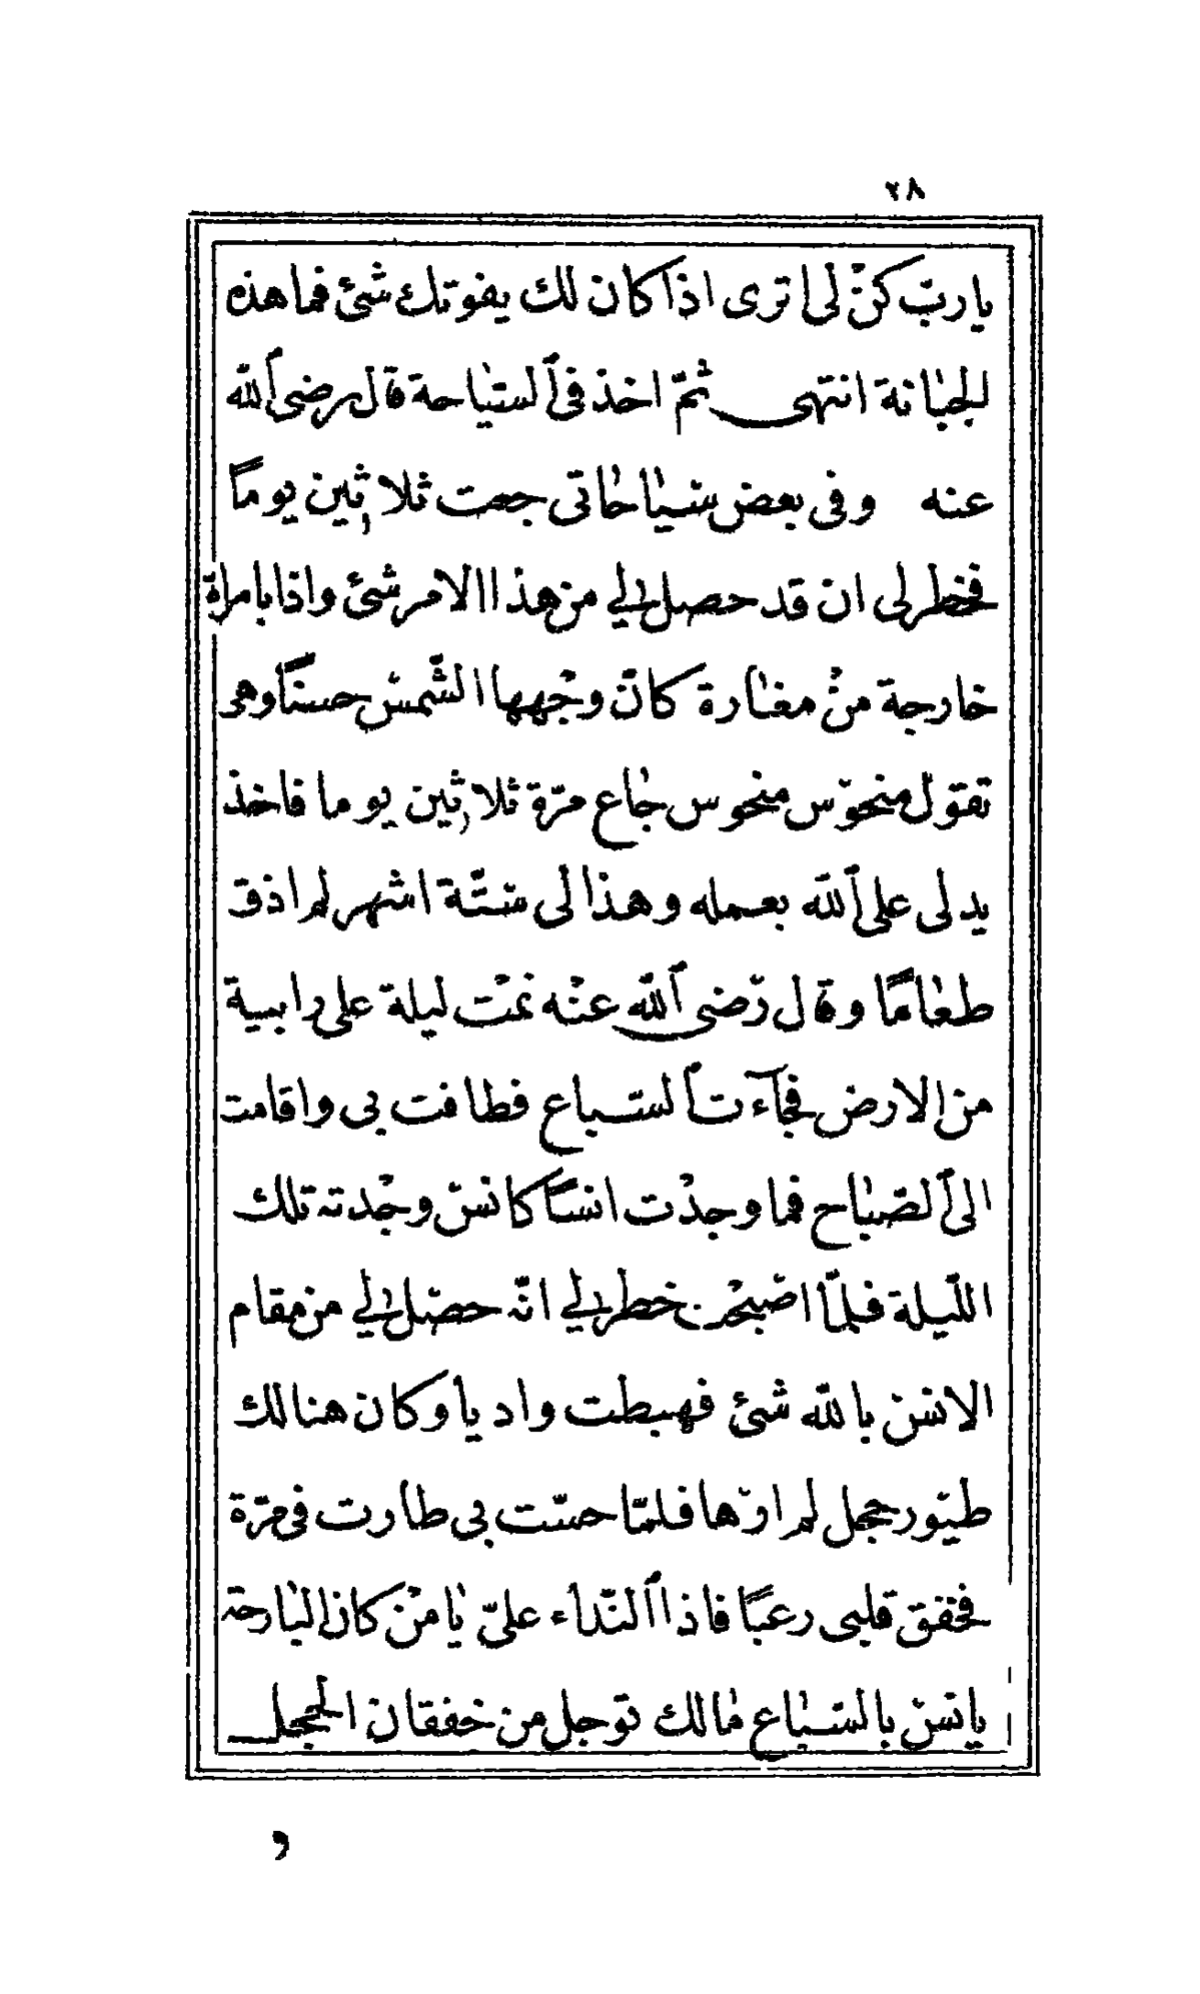 ٢٨
يا ربّ كنْ لى اترى اذا كان لك يفوتك شئ فما هذه
الجبانة انتهى ثمّ اخذ فى ٱلسّياحة قال رضى ٱللّه
عنه وفى بعض سياحاتى جعت ثلاثين يومًا
فخطر لى ان قد حصل لي من هذا الامر شئ واذا بامراة
خارجة منْ مغارة كانّ وجْهها الشّمس حسنًا وهى
تقول منحوّس منحوس جاع مرّة ثلاثين يوما فاخذ
يدلى على ٱللّه بعمله وهذا لى ستّة اشهر لم اذق
طعامًا وقال رّضى ٱللّه عنْه نمْت ليلة على رابية
من الارض فجآءت ٱلسّباع فطافت بى واقامت
الى ٱلصّباح فما وجدْت انسًا كانس وجْدته تلك
اللّيلة فلمّا اصْبحْت خطر لي انّه حصّل لي من مقام
الانس باللّه شئ فهبطت واديا وكان هنالك
طيور حجل لم ارها فلمّا حسّت بى طارت فى مرّة
فخفق قلبى رعبًا فاذا ٱلنّدآء علىّ يا منْ كان البارحة
يانس بالسّباع مالك توجل من خفقان الحجل
و